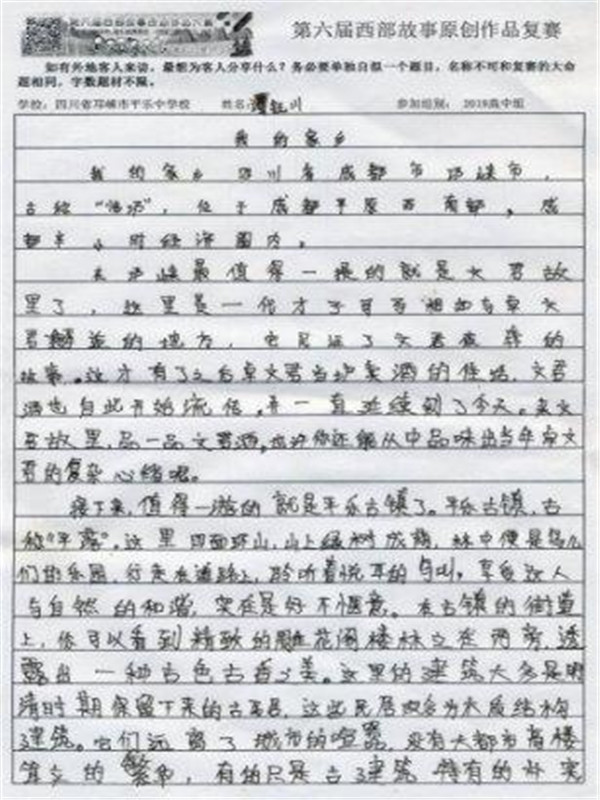 第六届西部故事原创作品复赛
如有外地客人来访，最想为客人分享什么？务必要单独自拟一个题目，名称不可和复赛的大命
题相同，字数题材不限。
学校：四川省邛崃市平乐中学校 姓名： 参加组别： 2019高中组
我的家乡
我的家乡四川省成都市邛崃市，
古称“临邛”，位于成都平原西南部，成
都半小时经济圈内。
来邛崃最值得一提的就是文君故
里了，这里是一代才子司马相如与卓文
君 的地方，也见证了文君夜奔的
故事。这才有了之后卓文君当垆卖酒的佳话，文君
酒也自此开始流传，并一直延续到了今天。来文
君故里，品一品文君酒，也许你还能从中品味出当年卓文
君的复杂心绪呢。
接下来，值得一游的就是平乐古镇了。平乐古镇，古
称“平落”。这里四面环山，山上绿树成荫，林中便是鸟儿
们的乐园，行走在道路上，聆听着悦耳的鸟叫，享受这人
与自然的和谐，实在是好不惬意。在古镇的街道
上，你可以看到精致的 花阁楼林立在两旁，透
露出一种古色古香之美。这里的建筑大多是明
清时期保留下来的古民居，这些民居皆为木质结构
建筑。它们远离了城市的喧嚣，没有大都市高楼
耸立的繁华，有的只是古建筑特有的朴实